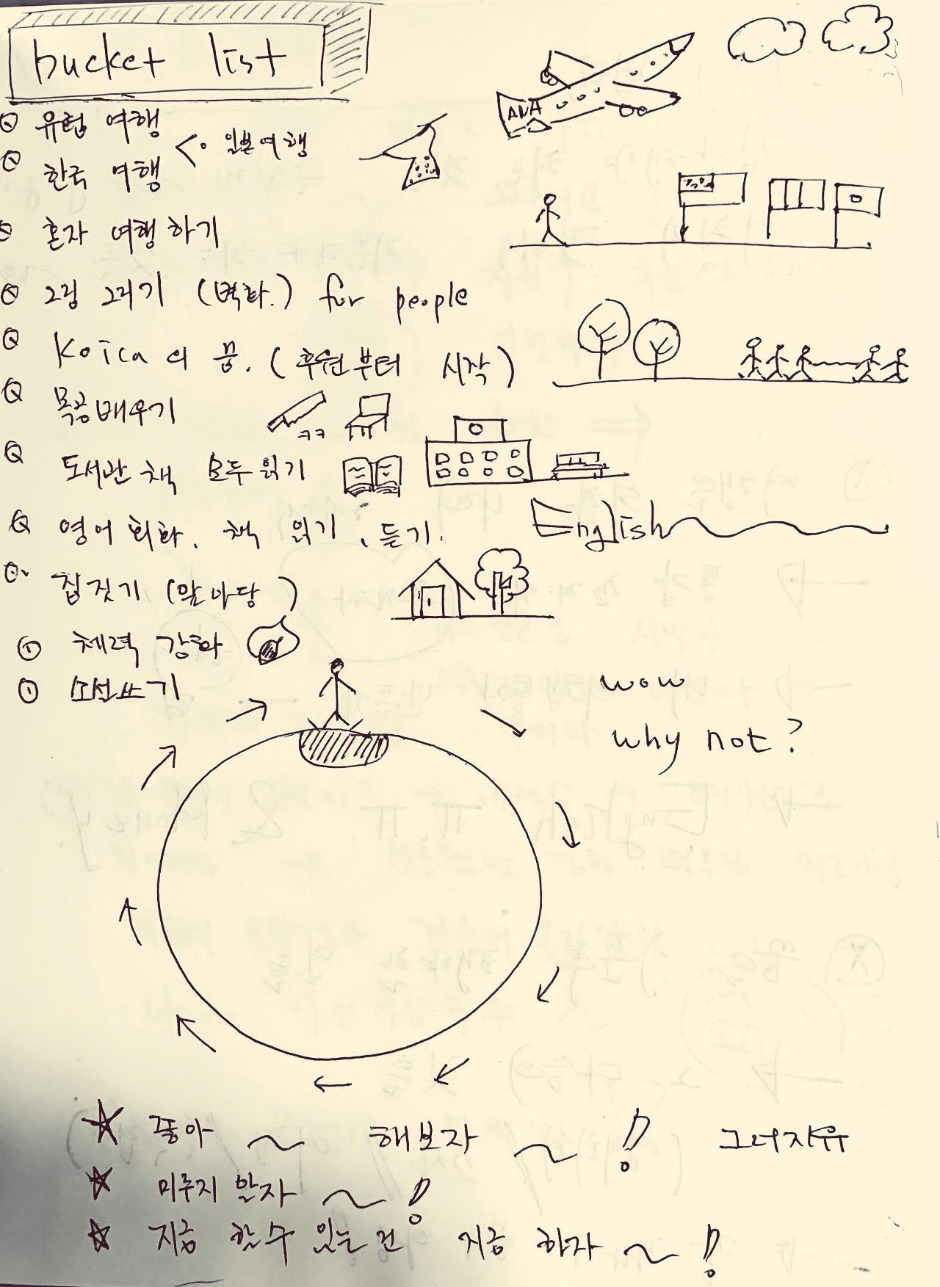 bucket list
유럽 여행
한국 여행 < 일본여행
ANA
혼자 여행하기
그림 그리기 (벽화.) for people
Koica의 꿈. (후원부터 시작)
목공배우기
ㅋㅋ
도서관 책 모두 읽기
영어 회화. 책 읽기, 듣기. English
집짓기 (앞마당)
체력 강화
소설쓰기
wow
why not?
좋아 ~ 해보자 ~ !
미루지 말자 ~ !
지금 할수 있는건 지금 하자 ~ !